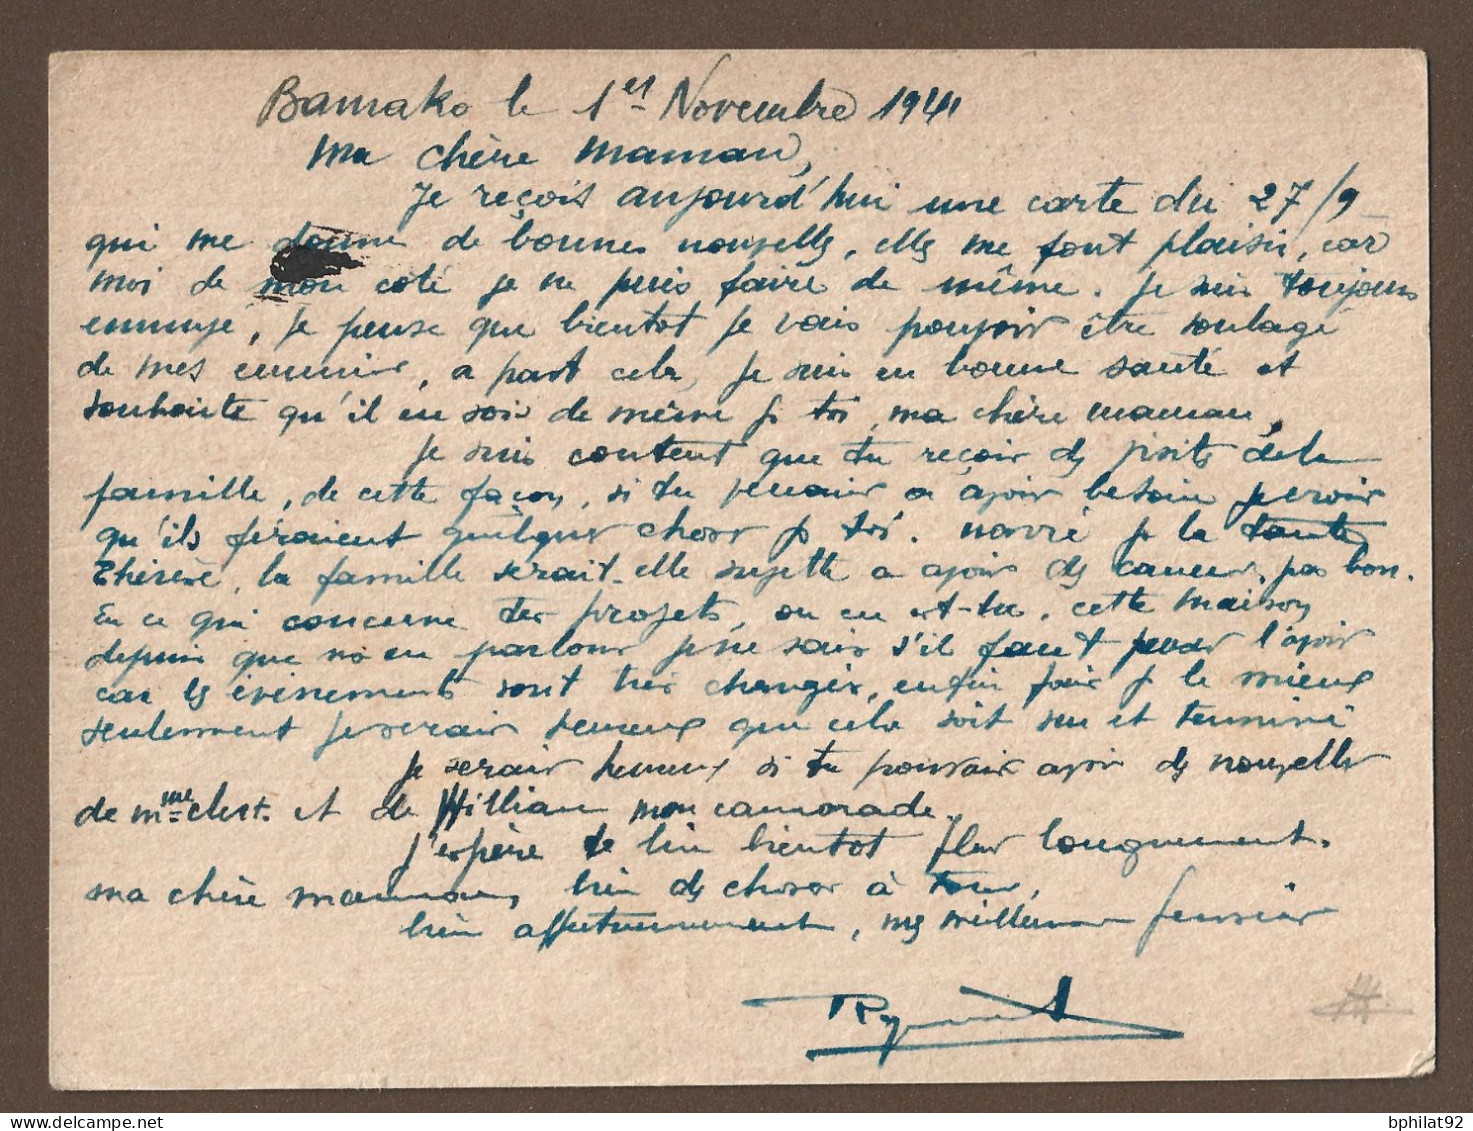 Bamako le 1er Novembre 1941
Ma chère maman,
Je reçois aujourd'hui une carte du 27/9
qui me donne de bonnes nouvelles, elles me font plaisir, car
moi de mon coté je ne puis faire de même. Je suis toujours
ennuyé, je pense que bientot je vais pouvoir être soulagé
de mes ennuis, a part cela, je suis en bonne santé et
souhaite qu'il en soit de même p toi, ma chère maman,
Je suis content que tu reçois des visites de la
famille, de cette façon, si tu venais a avoir besoin
qu'ils feraient quelques choses p toi. navré p la tante
Thérèse, la famille serait-elle sujette a avoir des cancers, pas bon.
En ce qui concerne tes projets, ou en es-tu, cette maison
depuis que ns en parlons je ne sais s'il faut l'avoir
car les évènements sont très changés, enfin fais p le mieux
seulement je serais heureux que cela soit su et terminé
Je serais heureux si tu pouvais avoir des nouvelles
de mme et de William mon camarade.
J'espère te lire bientot plus longuement.
ma chère maman, bien des choses à tous,
bien affectueusement, mes meilleures pensées